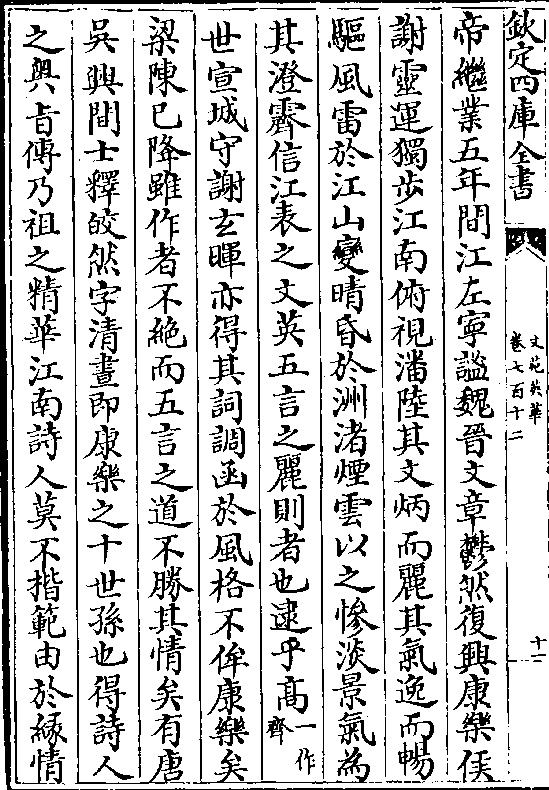 欽定四庫全書
文苑英華
卷七百十二
十二
帝繼業五年間江左寧謐魏晉文章鬱然復興康樂侯
謝靈運獨步江南俯視潘陸其文炳而麗其氣逸而暢
驅風雷於江山變晴昏於洲渚煙雲以之慘淡景氣為
其澄霽信江表之文英五言之麗則者也逮乎高一作齊
世宣城守謝玄暉亦得其詞調函於風格不侔康樂矣
梁陳已降雖作者不絶而五言之道不勝其情矣有唐
吳興間士釋皎然字清晝即康樂之十世孫也得詩人
之奧旨傳乃祖之精華江南詩人莫不揩範由於緣情